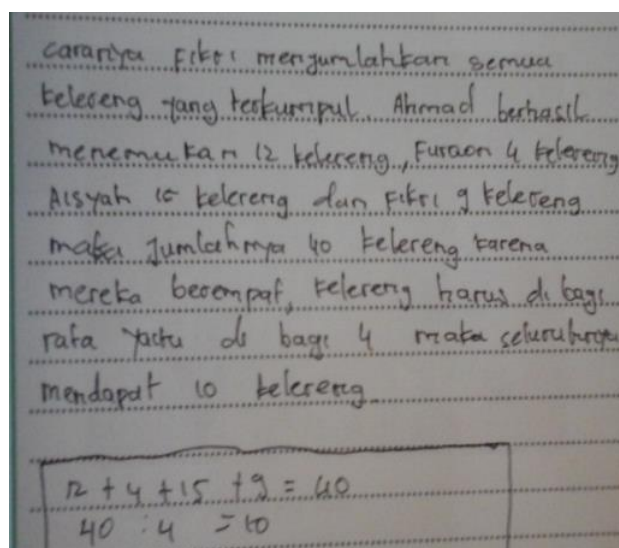 caranya Fikri mengumlahkan semua
kelereng yang terkumpul. Ahmad berhasil
menemukan 12 kelereng, Furaon 4 kelereng
Aisyah 15 kelereng dan Fikri 9 kelereng
maka jumlahnya 40 kelereng karena
mereka berempat, kelereng harus di bagi
rata yaitu di bagi 4 maka seluruhnya
mendapat 10 kelereng
12 + 4 + 15 + 9 = 40
40 : 4 = 10